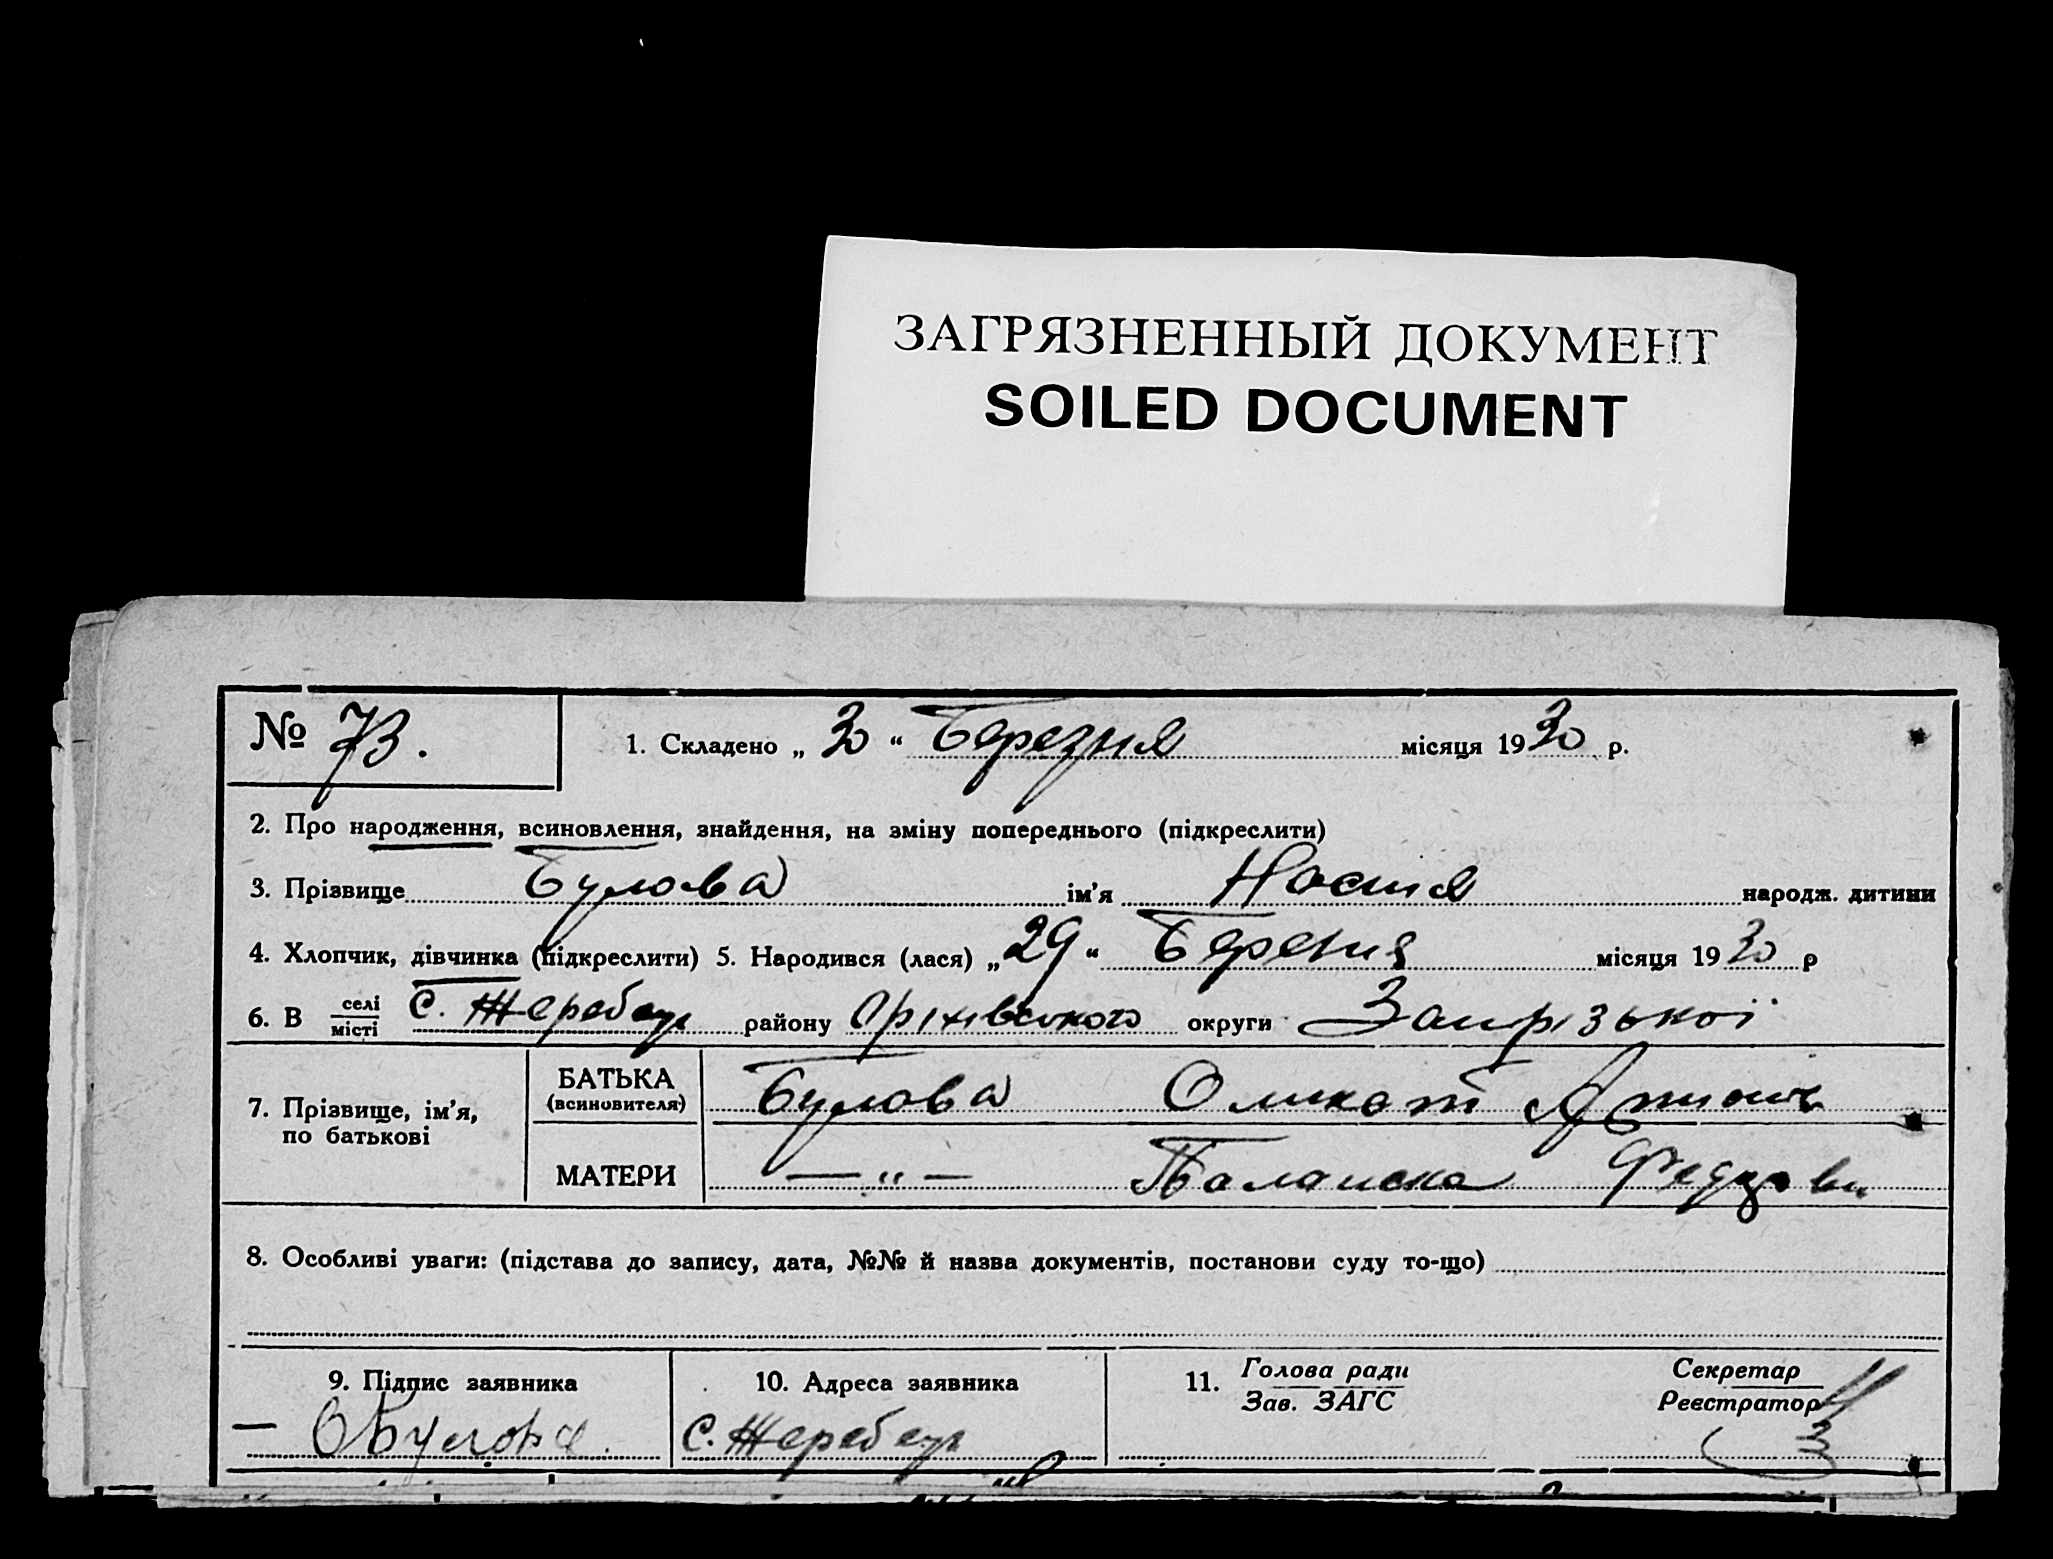 ЗАГРЯЗНЕННЫЙ ДОКУМЕНТ
SOILED DOCUMENT
№ 73. 1. Складено „ 30 “ Березня місяця 1930 р.
2. Про народження, всиновлення, знайдення, на зміну попереднього (підкреслити)
3. Прізвище Булова ім'я Настя народж. дитини
4. Хлопчик, дівчинка (підкреслити) 5. Народився (лася) „ 29 “ Березня місяця 1930 р
6. В селі місті С. Жеребець району Оріхівського округи Запрізької
7. Прізвище, ім'я, по батькові
БАТЬКА (всиновителя) Булова
МАТЕРИ — „ — Палашка
8. Особливі уваги: (підстава до запису, дата, №№ й назва документів, постанови суду то-що)
9. Підпис заявника 10. Адреса заявника 11. Голова ради Зав. ЗАГС Секретар Реєстратор
— ОБулова С. Жеребець